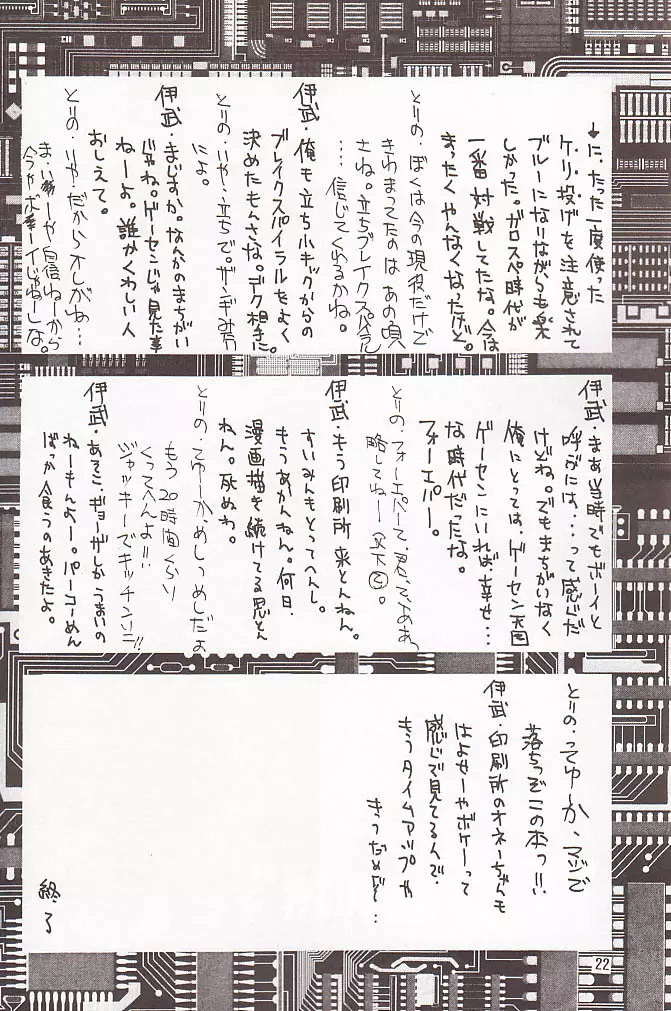 ↓に、たった一度使った
ゲリ投げを注意されて
ブルーになりながらも楽
しかった。ガロスペ時代が
一番対戦してたな。今は
まったくやんなくなったけど。
とりの・ぼくは今の現役だけで
きわまってたのはあの頃
さね。立ちブレイクスパイラル
…信じてくれるかね。
伊武・俺も立ち小キックからの
ブレイクスパイラルをよく
決めたもんさな。デク相手に。
とりの・いや、立ちで。ザンギみ方
によ。
伊武・まじすか。なんかのまちがい
じゃね。ゲーセンじゃ見た事
ねーよ。誰かくわしい人
おしえて。
とりの・いや・だからオレがね…
まい
や自信ねーから
今やボ
じゃねしな。
伊武・まあ当時でもボーイと
呼ぶには…って感じだ
けどね。でもまちがいなく
俺にとっては、ゲーセン天国
ゲーセンにいれば幸せ…
な時代だったな。
フォーエバー。
とりの・フォーエバーて、君って、ああ
略してねー
以下
伊武・もう印刷所来とんねん。
すいみんもとってへんし。
もうあかんねん。何日
漫画描き続けてる思とん
ねん。死ぬわ。
とりの・てゆーか、めしつめしだよ
もう20時間くらい
くってへんよ!!
ジャッキーでキッチンへ!!
伊武・あそこ、ギョーザしかうまいの
ねーもんよー。パーコーめん
ばっか食うのあきたよ。
とりの・ってゆーか、マジで
落ちっぞこの本っ!!
伊武・印刷所のオネーちゃんも
はよせーやボケーって
感じで見てるんで、
もうタイムアップや
きっだめだ…
終了
22